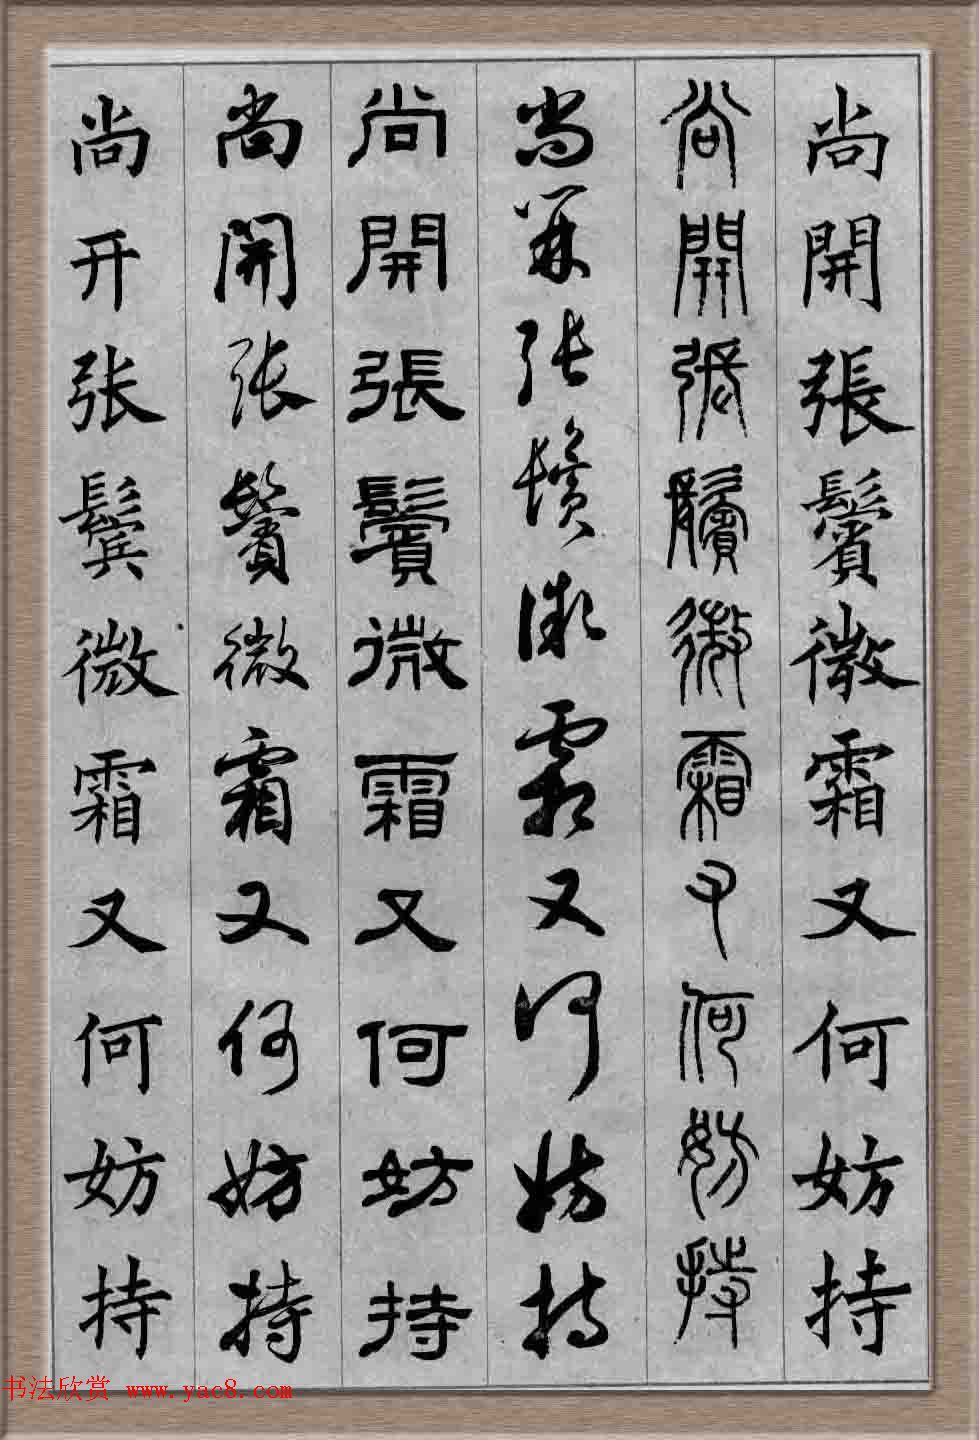 尚開張鬢微霜又何妨持
尚開張鬢微霜又何妨持
尚開张鬢微霜又何妨持
尚開張鬢微霜又何妨持
尚開张鬢微霜又何妨持
尚开张鬓微霜又何妨持
书法欣赏 www.yac8.com